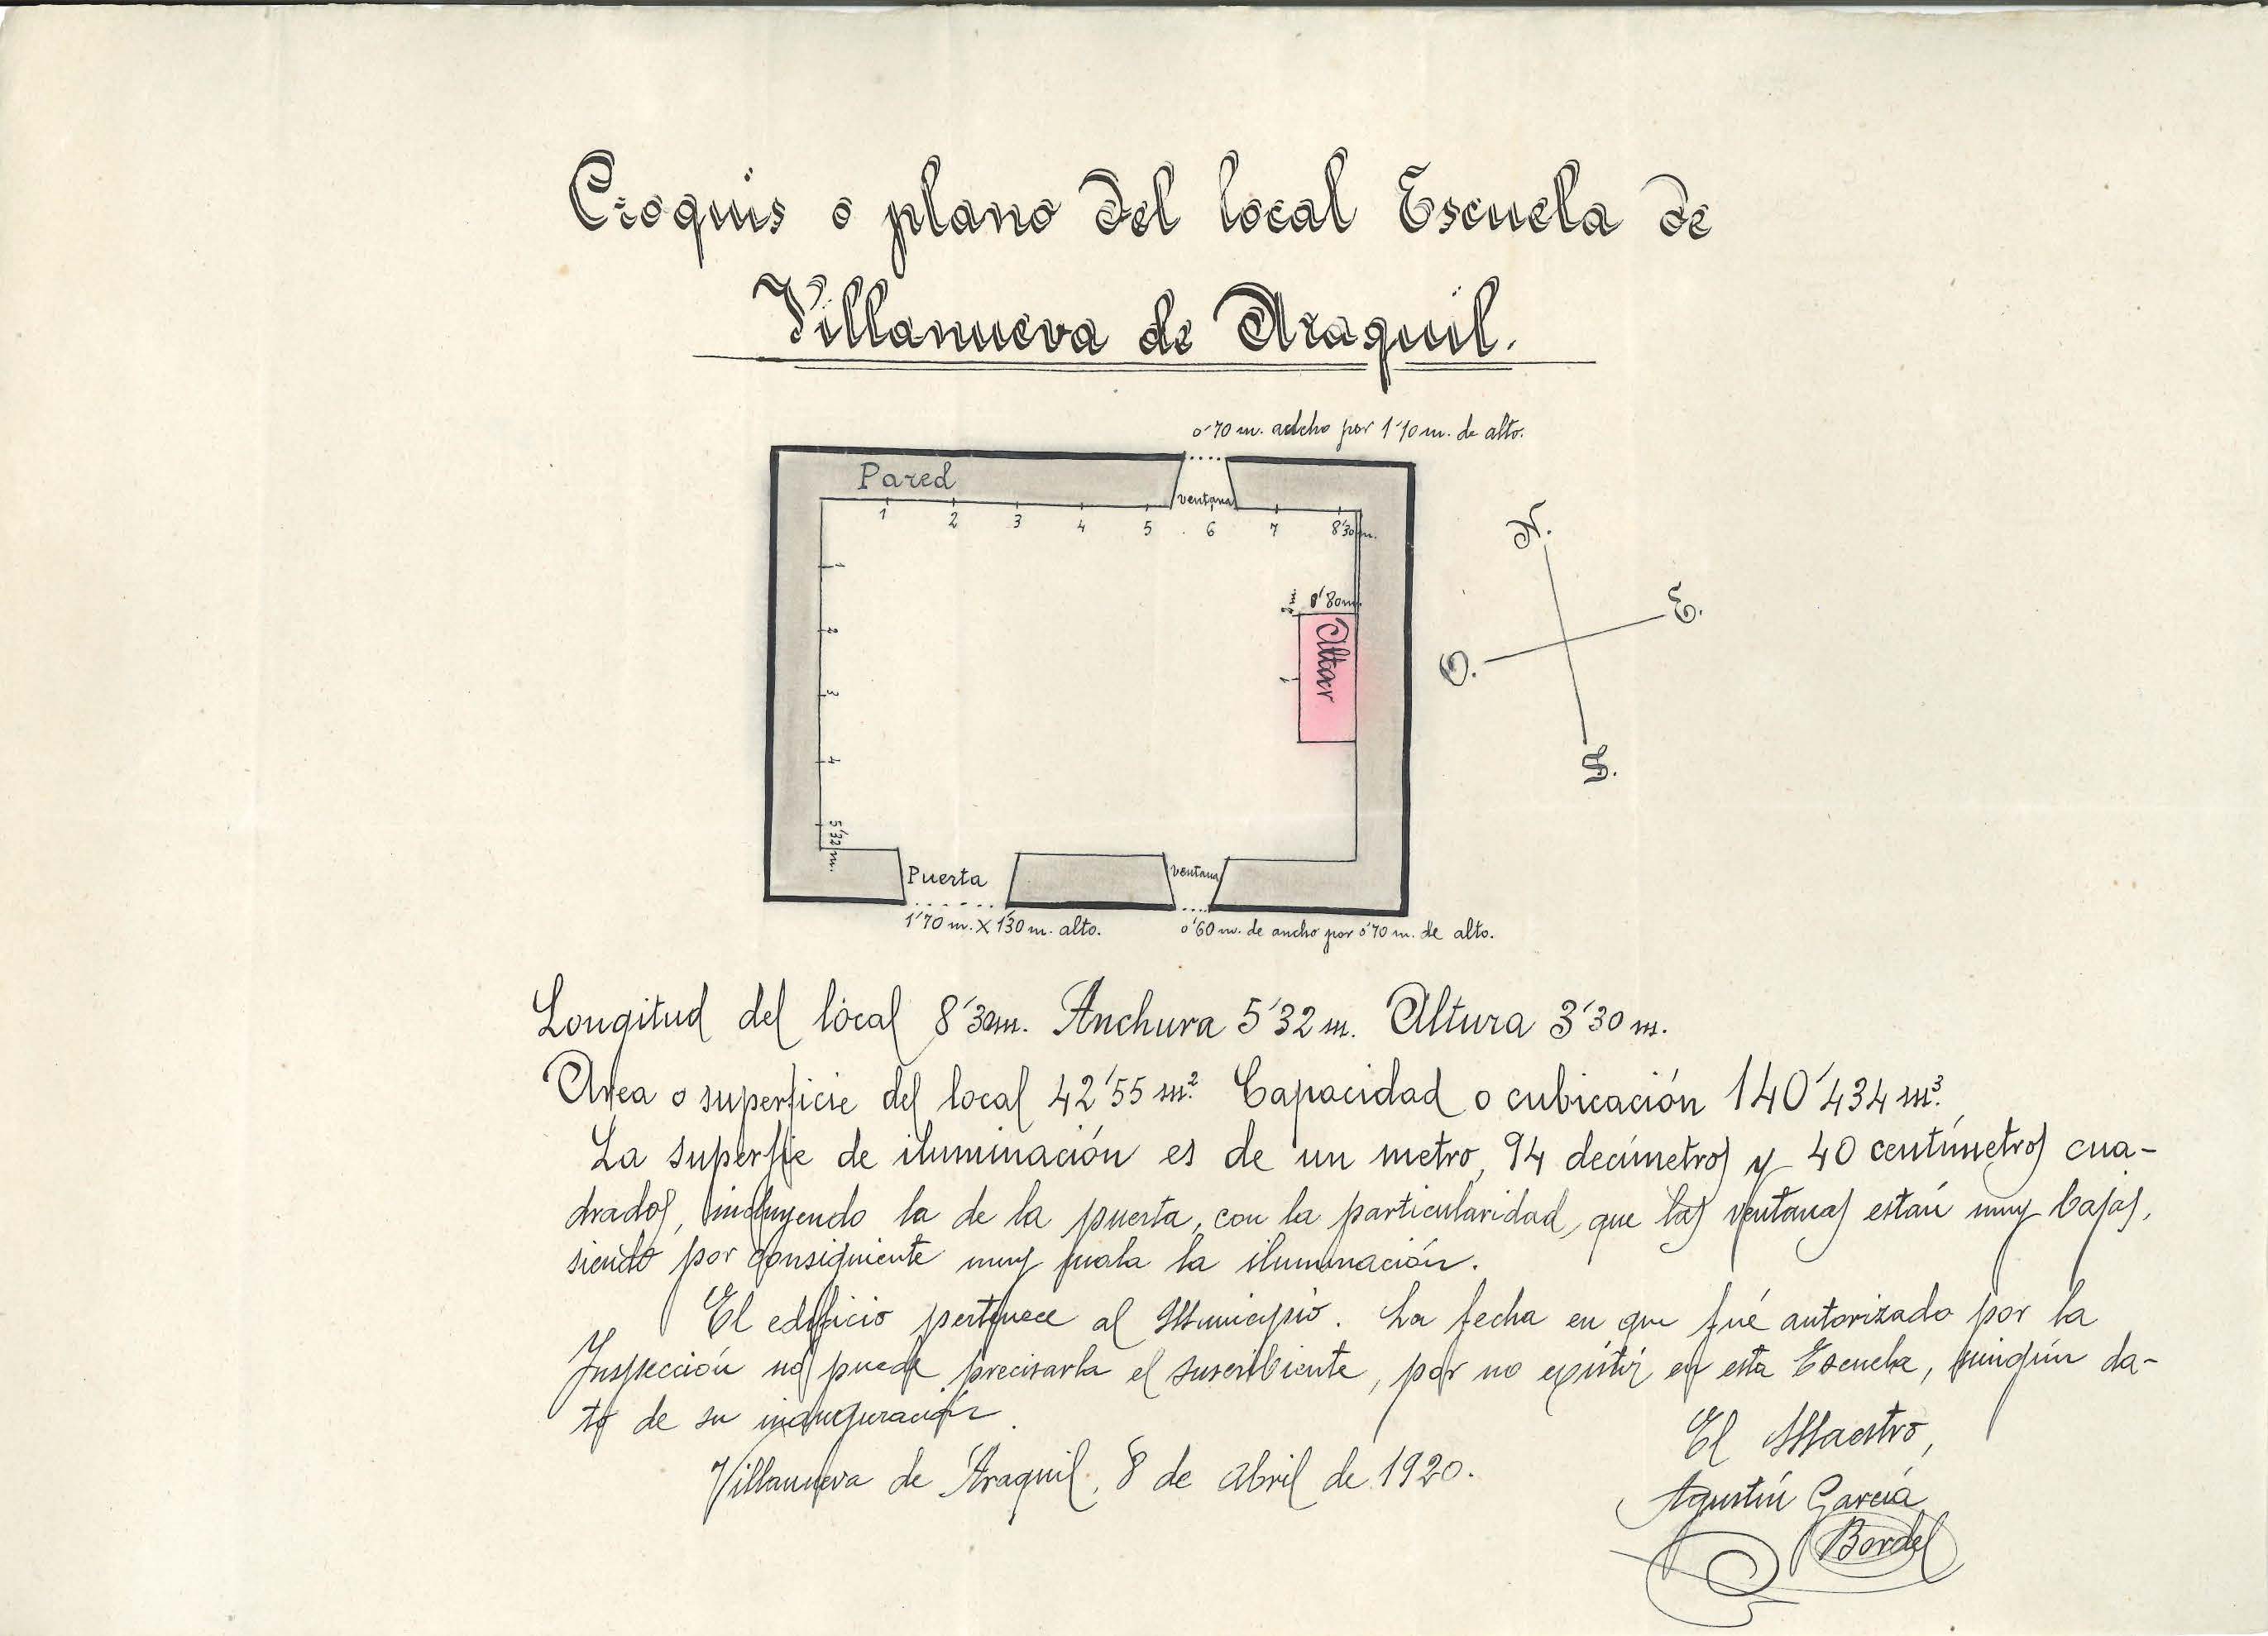 Croquis o plano del local Escuela de
Villanueva de Araquil.
0'70 m. ancho por 1'10 m. de alto.
Pared
ventana
1 2 3 4 5 6 7 8'30 m.
1
2
3
4
5'32 m.
N.
E.
O.
S.
0'80 m.
2 m.
1
Altar
Puerta
ventana
1'70 m. X 1'30 m. alto.
0'60 m. de ancho por 0'70 m. de alto.
Longitud del local 8'30 m. Anchura 5'32 m. Altura 3'30 m.
Area o superficie del local 42'55 m². Capacidad o cubicación 140'434 m³.
La superfie de iluminación es de un metro, 94 decímetros y 40 centímetros cua-
drados, incluyendo la de la puerta, con la particularidad, que las ventanas están muy bajas,
siendo por consiguiente muy mala la iluminación.
El edificio pertenece al Municipio. La fecha en que fué autorizado por la
Inspección no puede precisarla el suscribiente, por no existir en esta Escuela, ningún da-
to de su inauguración.
Villanueva de Araquil, 8 de abril de 1920.
El Maestro,
Agustín García
Bordel